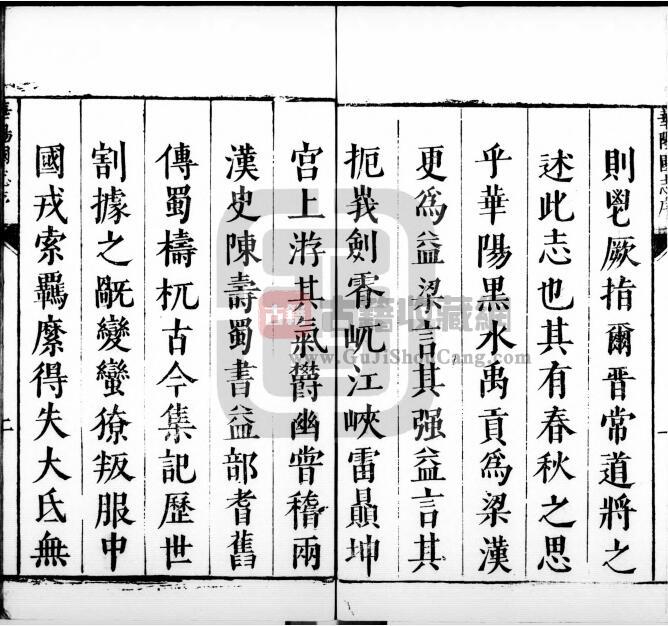 華陽國志序
則鬯厥指爾晉常道將之
述此志也其有春秋之思
乎華陽黑水禹貢爲梁漢
更爲益梁言其强益言其
扼峩劍岏江峽雷顚坤
一
宫上游其氣欝幽甞稽兩
漢史陳壽蜀書益部耆舊
傳蜀檮杌古今集記歷世
割據之變蠻獠叛服中
國戎索羈縻得失大氐無
古籍收藏網
www.GuJiShouCang.com